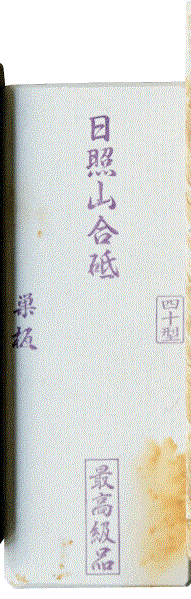 四十型
日照山合砥
最高級品
巣板